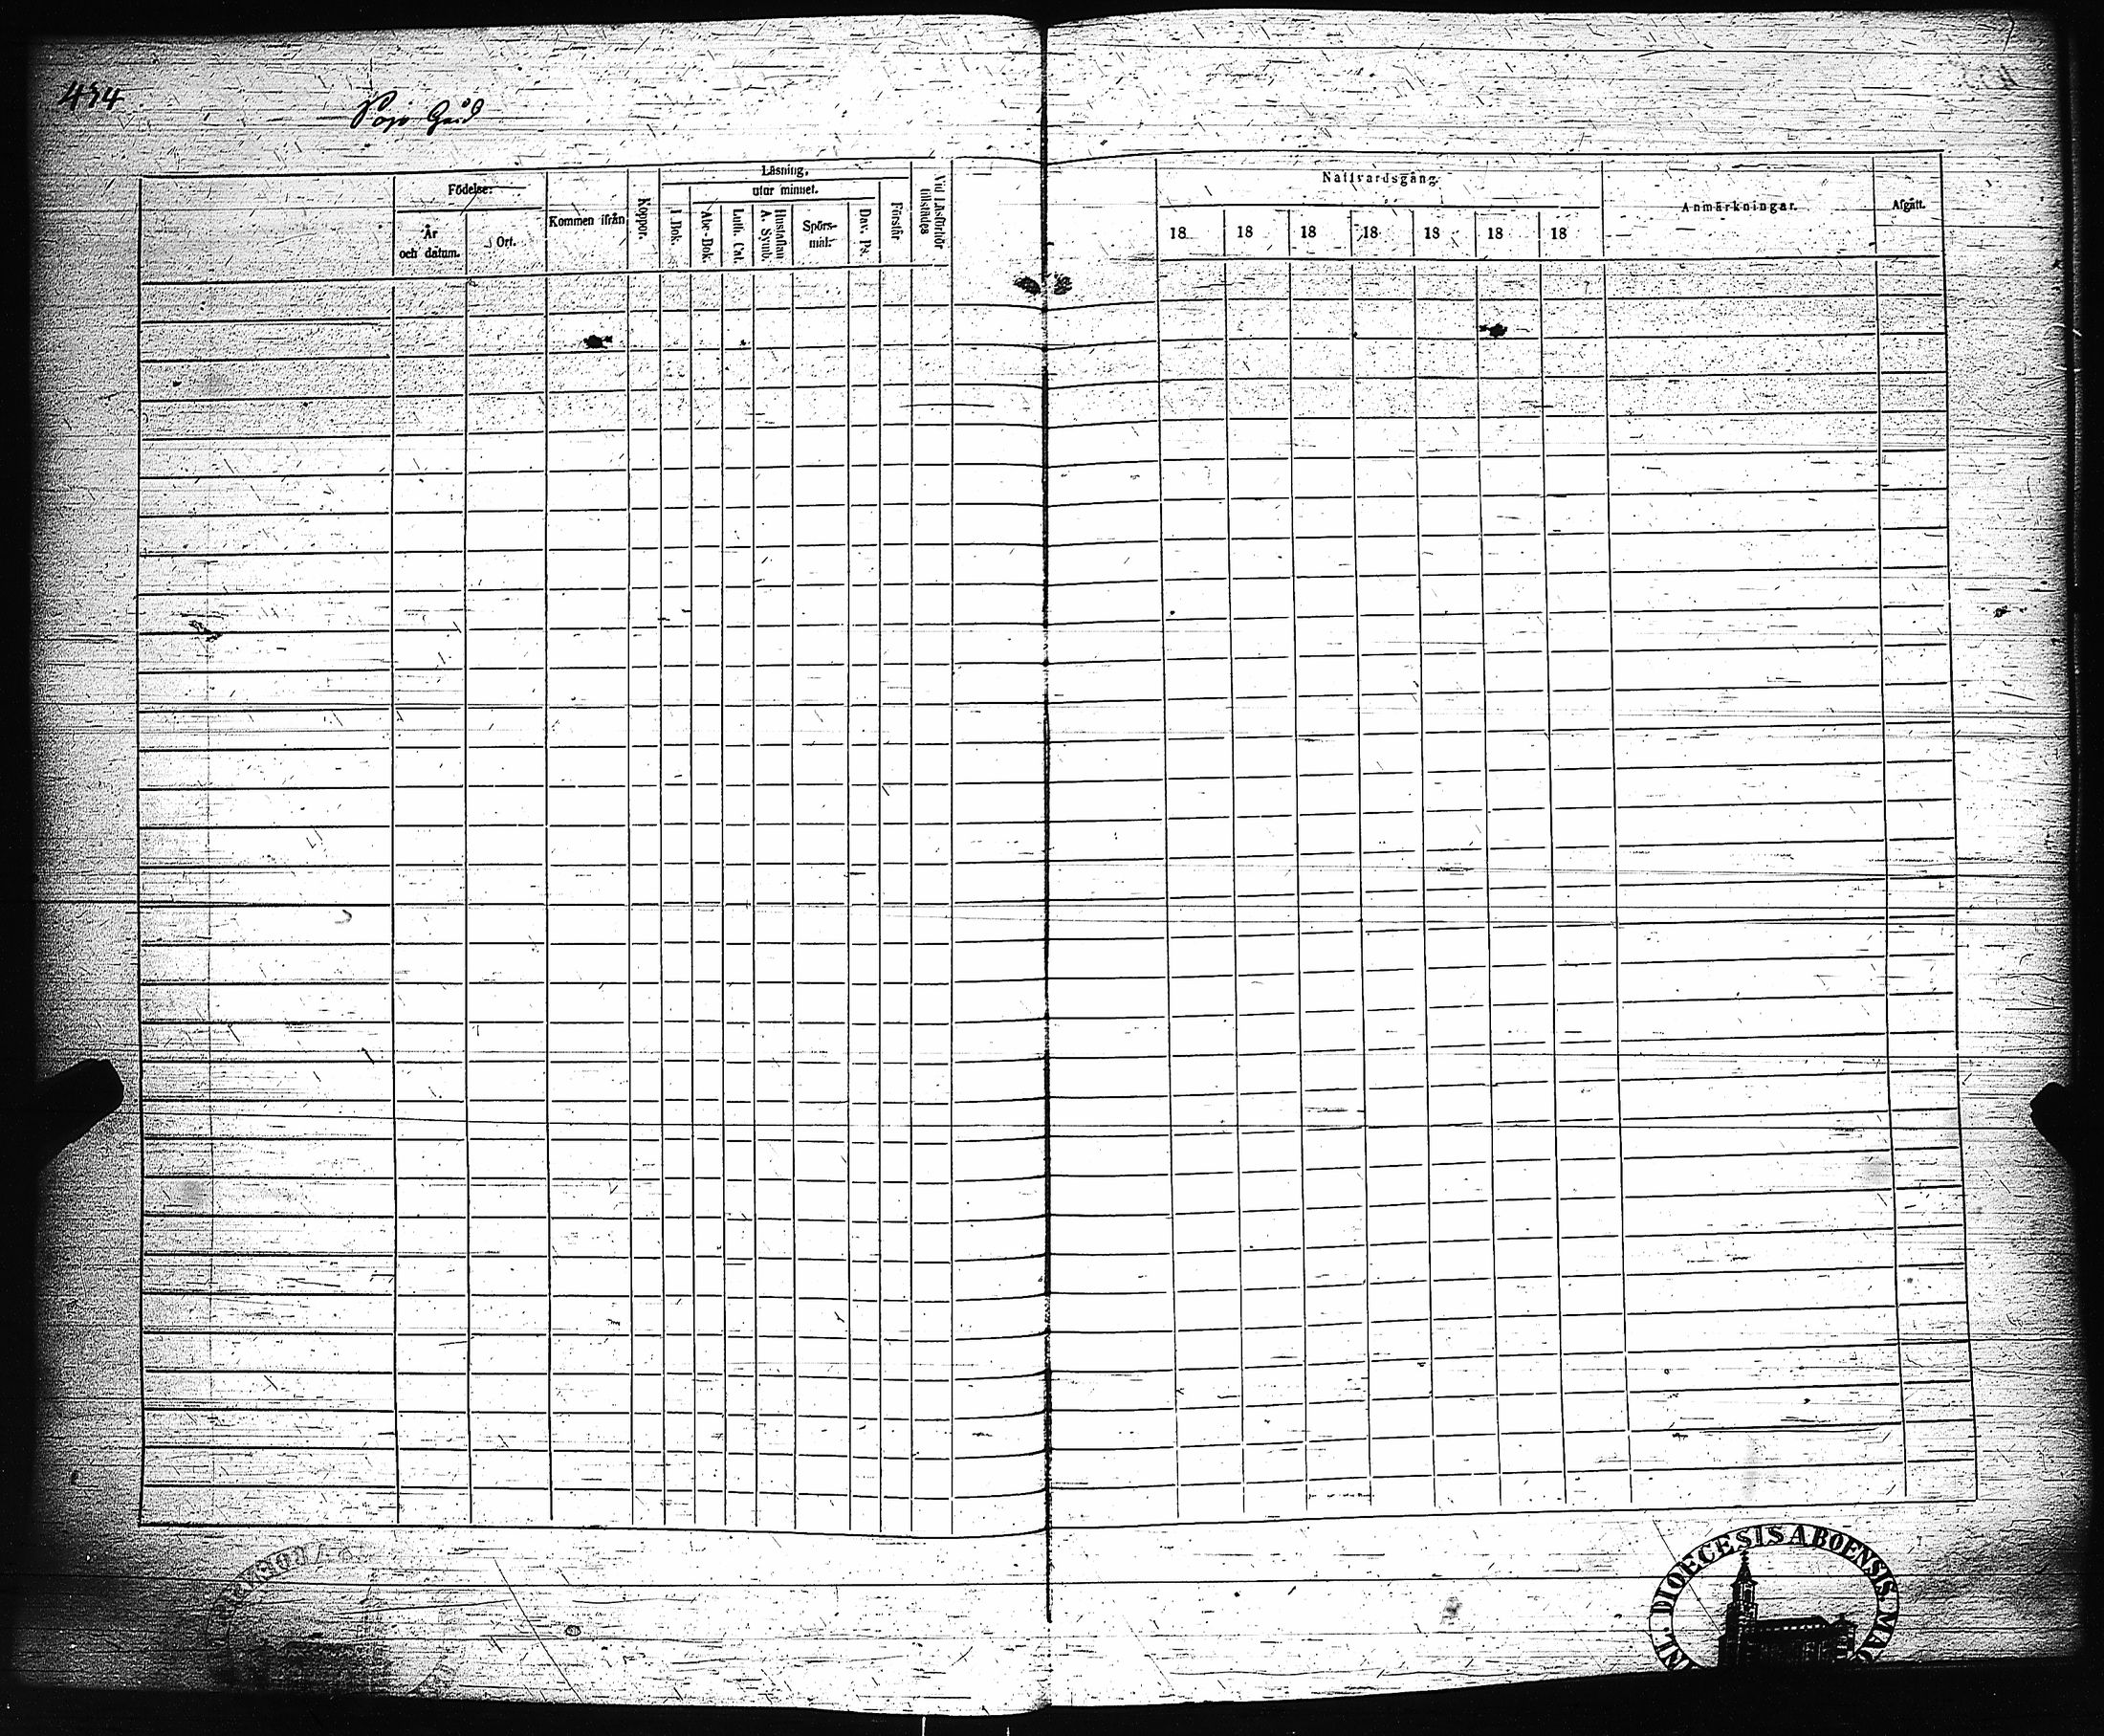 434
Födelse:
År
och datum.
Ort.
Kommen ifrån
Koppor.
Läsning,
utur minnet.
I Bok.
Abc-Bok.
Luth. Cat.
Hustaflan
A. Symb.
Spörs-
mål.
Dav. Ps.
Förstår
Vid Läsförhör
tillstädes
Nattvardsgång.
18 18 18 18 18 18 18
Anmärkningar.
Afgått.
DIOECESIS ABOENSIS